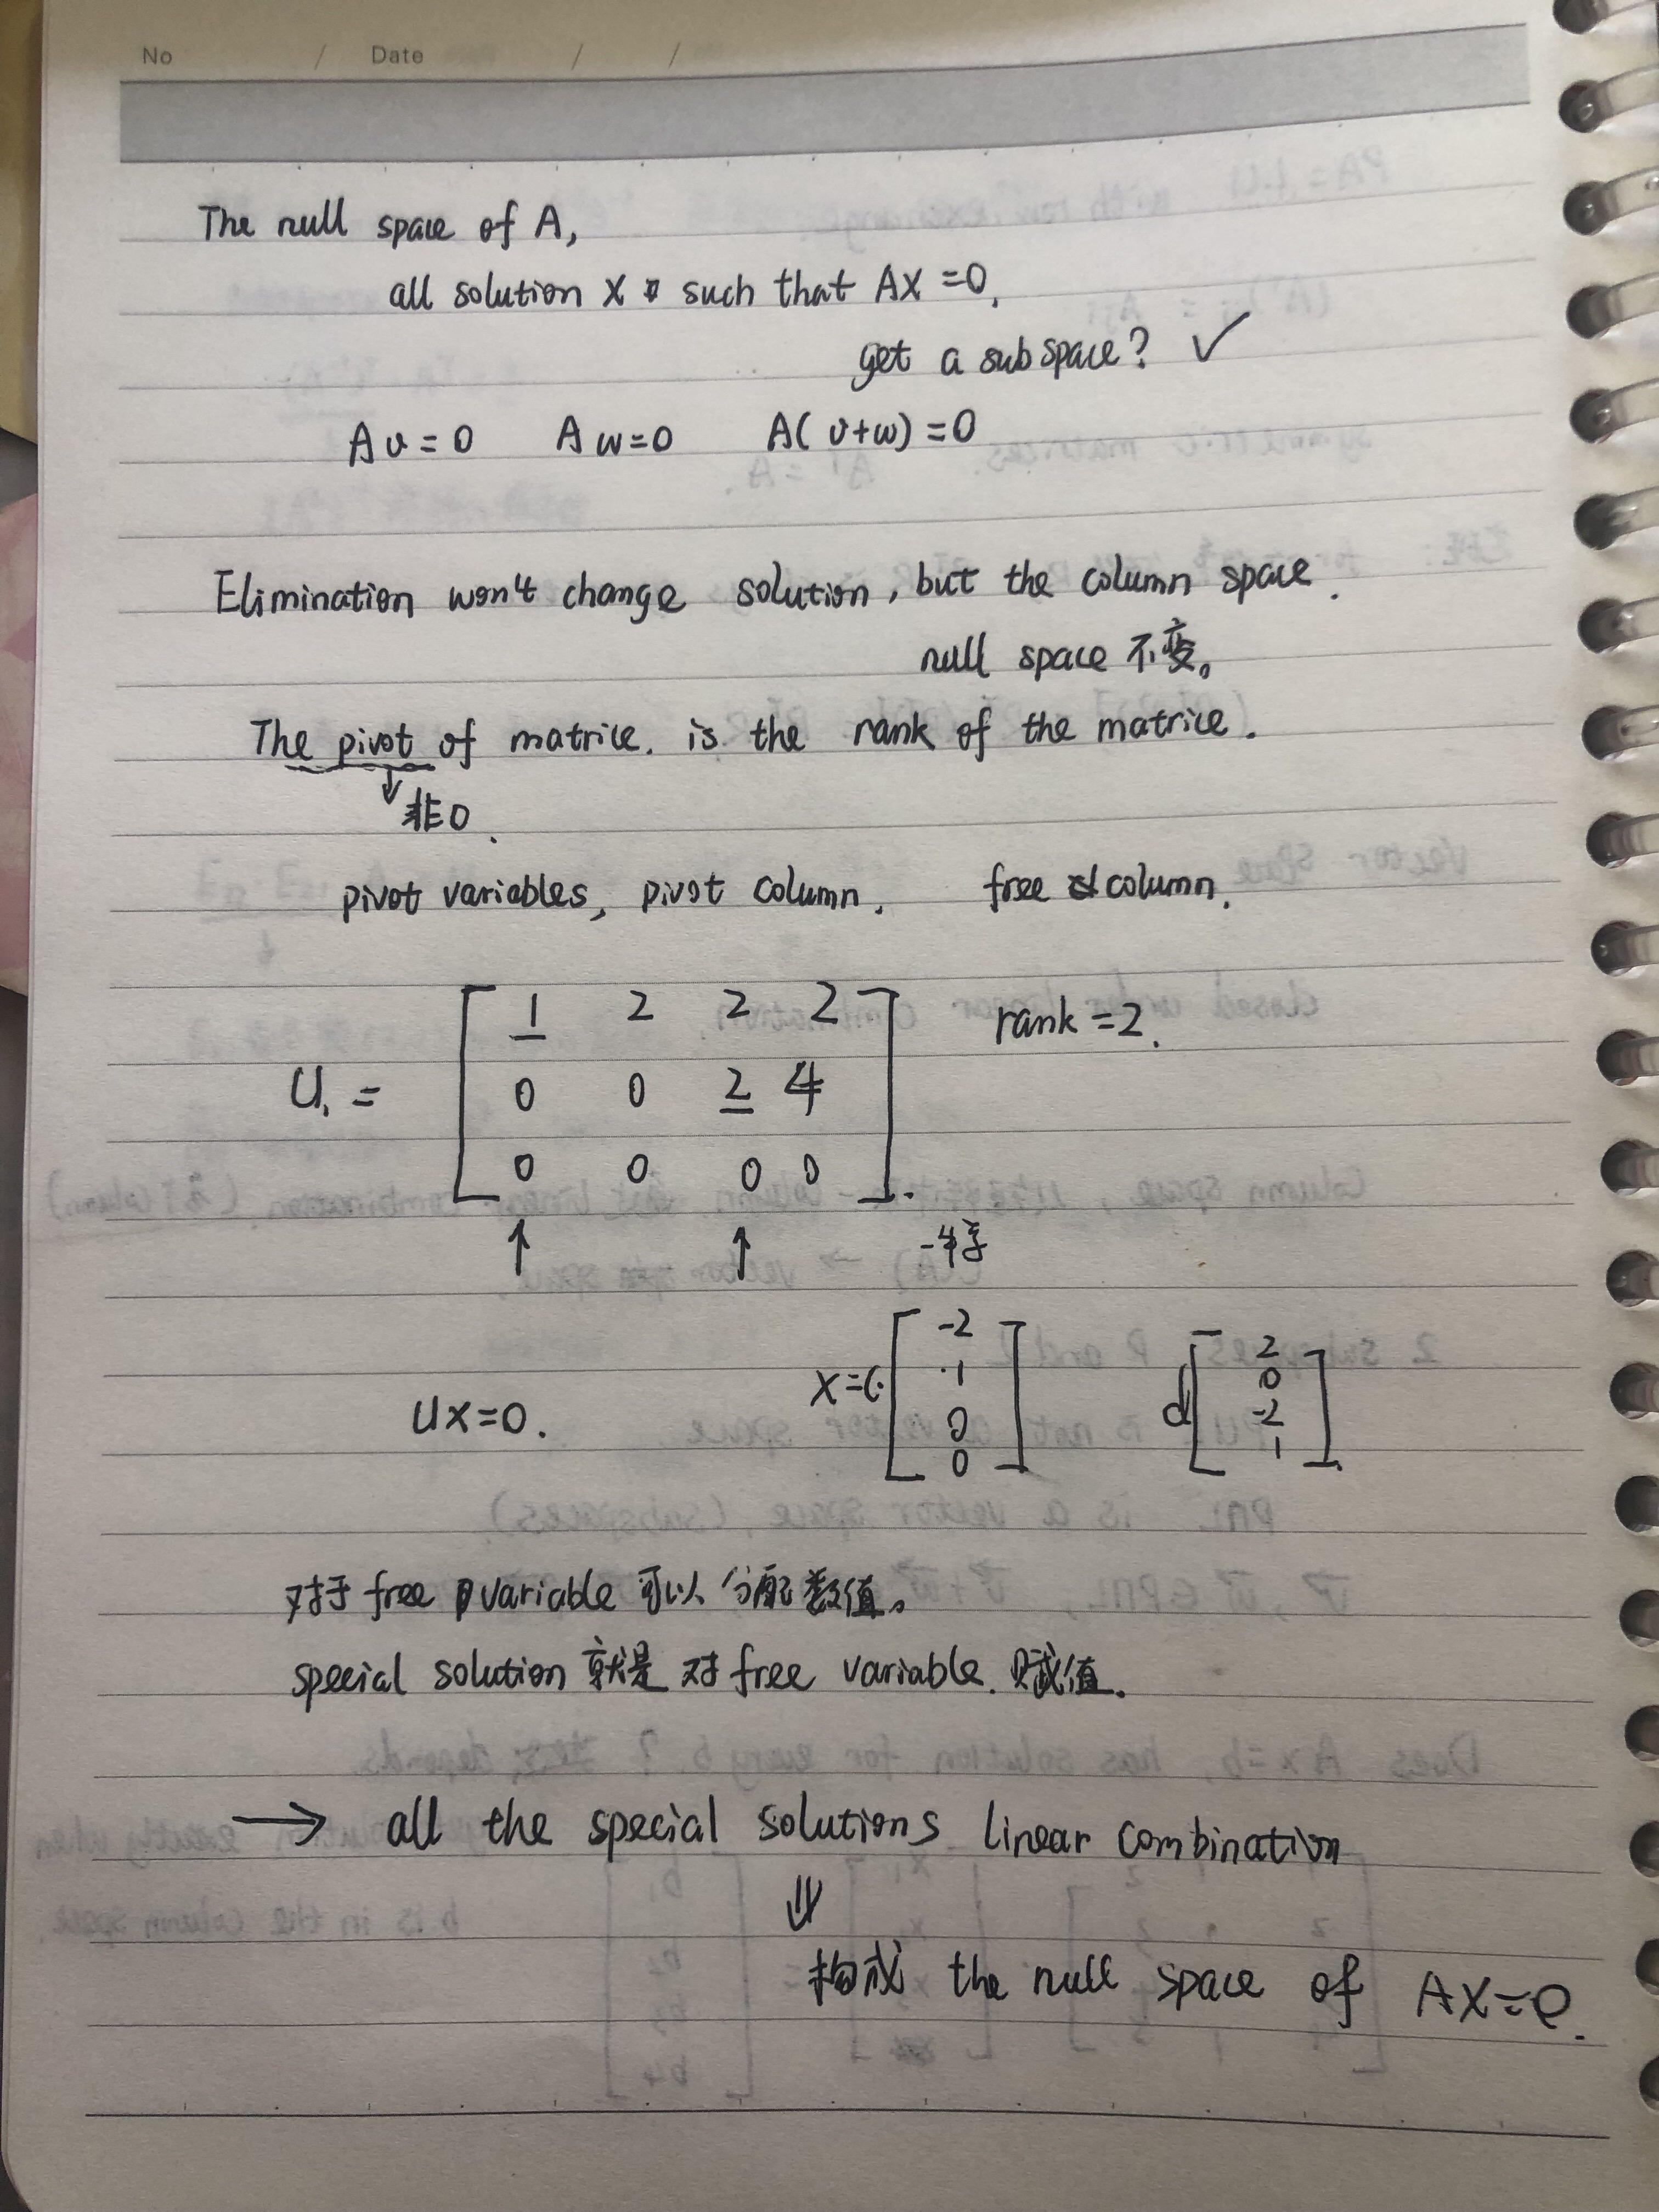 No / Date / /
The null space of A,
all solution X such that AX=0.
get a subspace? ✓
Av=0 Aw=0 A(v+w)=0
Elimination won't change solution, but the column space.
null space 不变。
The pivot of matrice. is the rank of the matrice.
↓非0.
pivot variables, pivot column. free column.
U. = [ 1 2 2 2 rank=2.
0 0 2 4
0 0 0 0 ].
↑ ↑
UX=0. X=C· [ -2 1 0 0 ] d [ 2 0 -2 1 ].
对于 free variable 可以分配数值。
special solution 就是对 free variable. 赋值.
→ all the special solutions linear combination
⇓
构成 the null space of AX=0.